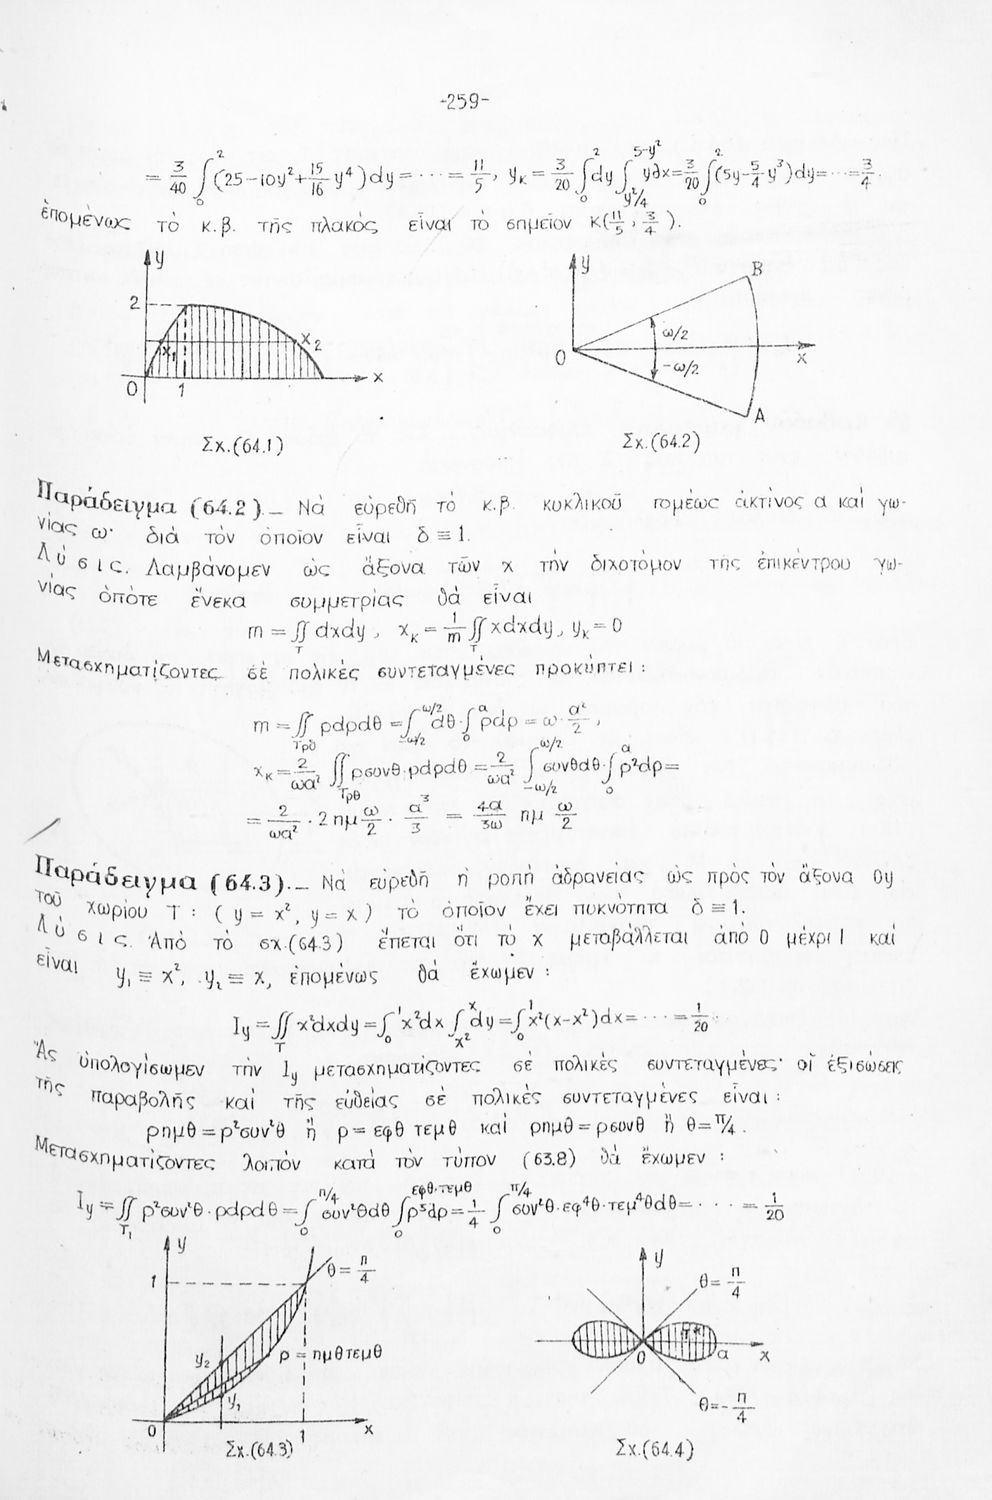 -259-
= 3/40 ∫₀² (25-10y²+15/16 y⁴)dy = ··· = 11/5, y_K = 3/20 ∫₀² dy ∫_{y²/4}^{5-y²} ydx = 3/20 ∫₀² (5y-5/4 y³)dy = ··· = 3/4.
ἑπομένως τὸ κ.β. τῆς πλακὸς εἶναι τὸ σημεῖον K(11/5, 3/4).
y
2
x₁
x₂
x
0
1
Σχ.(64.1)
y
B
ω/2
0
x
-ω/2
A
Σχ.(64.2)
Παράδειγμα (64.2).— Νὰ εὑρεθῆ τὸ κ.β. κυκλικοῦ τομέως ἀκτῖνος α καὶ γω-
νίας ω· διὰ τὸν ὁποῖον εἶναι δ ≡ 1.
Λύσις. Λαμβάνομεν ὡς ἄξονα τῶν x τὴν διχοτόμον τῆς ἐπικέντρου γω-
νίας ὁπότε ἕνεκα συμμετρίας θὰ εἶναι
m = ∬_T dxdy, x_K = 1/m ∬_T xdxdy, y_K = 0
Μετασχηματίζοντες σὲ πολικὲς συντεταγμένες προκύπτει:
m = ∬_{Tρθ} ρdρdθ = ∫_{-ω/2}^{ω/2} dθ·∫₀^α ρdρ = ω·α²/2,
x_K = 2/ωα² ∬_{Tρθ} ρσυνθ·ρdρdθ = 2/ωα² ∫_{-ω/2}^{ω/2} συνθdθ·∫₀^α ρ²dρ =
= 2/ωα² · 2ημ ω/2 · α³/3 = 4α/3ω ημ ω/2
Παράδειγμα (64.3).— Νὰ εὑρεθῆ ἡ ροπὴ ἀδρανείας ὡς πρὸς τὸν ἄξονα 0y
τοῦ χωρίου T: (y = x², y = x) τὸ ὁποῖον ἔχει πυκνότητα δ ≡ 1.
Λύσις. Ἀπὸ τὸ σχ.(64.3) ἕπεται ὅτι τὸ x μεταβάλλεται ἀπὸ 0 μέχρι 1 καὶ
εἶναι y₁ ≡ x², y₂ ≡ x, ἑπομένως θὰ ἔχωμεν:
I_y = ∬_T x²dxdy = ∫₀¹ x²dx ∫_{x²}^{x} dy = ∫₀¹ x²(x-x²)dx = ··· = 1/20.
Ἂς ὑπολογίσωμεν τὴν I_y μετασχηματίζοντες σὲ πολικὲς συντεταγμένες· οἱ ἐξισώσεις
τῆς παραβολῆς καὶ τῆς εὐθείας σὲ πολικὲς συντεταγμένες εἶναι:
ρημθ = ρ²συν²θ ἢ ρ = εφθ τεμθ καὶ ρημθ = ρσυνθ ἢ θ = π/4.
Μετασχηματίζοντες λοιπὸν κατὰ τὸν τύπον (63.8) θὰ ἔχωμεν:
I_y = ∬_{T₁} ρ²συν²θ·ρdρdθ = ∫₀^{π/4} συν²θdθ ∫₀^{εφθ·τεμθ} ρ³dρ = 1/4 ∫₀^{π/4} συν²θ·εφ⁴θ·τεμ⁴θdθ = ··· = 1/20
y
θ = π/4
1
y₂
ρ = ημθτεμθ
y₁
0
1
x
Σχ.(64.3)
y
θ = π/4
T*
0
α
x
θ = -π/4
Σχ.(64.4)